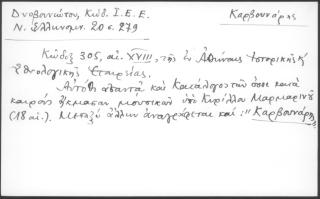 Δυοβουνιώτου, Κώδ. Ι. Ε. Ε.
Καρβουνάρης
Ν. Ἑλληνομν. 20 σ. 279
Κώδιξ 305, αἰ. XVIII, τῆς ἐν Ἀθήναις Ἱστορικῆς κ'
Ἐθνολογικῆς Ἑταιρίας.
Αὐτόθι ἀπαντᾷ καὶ Κατάλογος τῶν ὅσοι κατὰ
καιροὺς ἤκμασαν μουσικῶν ὑπὸ Κυρίλλου Μαρμαρηνοῦ
(18 αἰ.). Μεταξὺ ἄλλων ἀναγράφεται καὶ : "Καρβουνάρης"